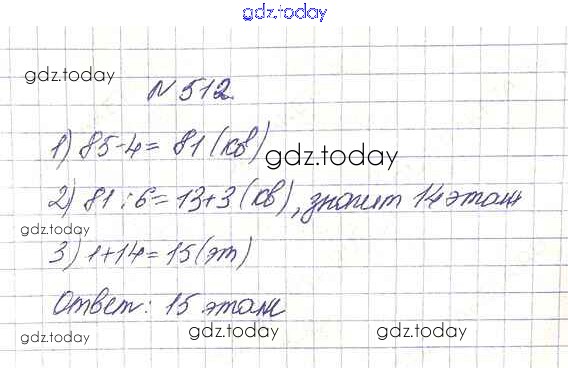 gdz.today
gdz.today
N 512.
1) 85-4= 81 (кв)
gdz.today
2) 81 : 6= 13+3 (кв), значит 14 этаж
gdz.today
3) 1+14= 15 (эт)
Ответ: 15 этаж
gdz.today gdz.today gdz.today